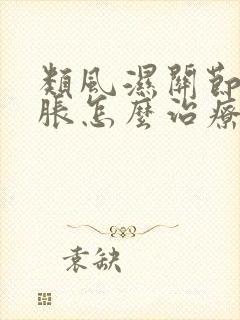 類風濕關節
脹怎麼治療
袁缺